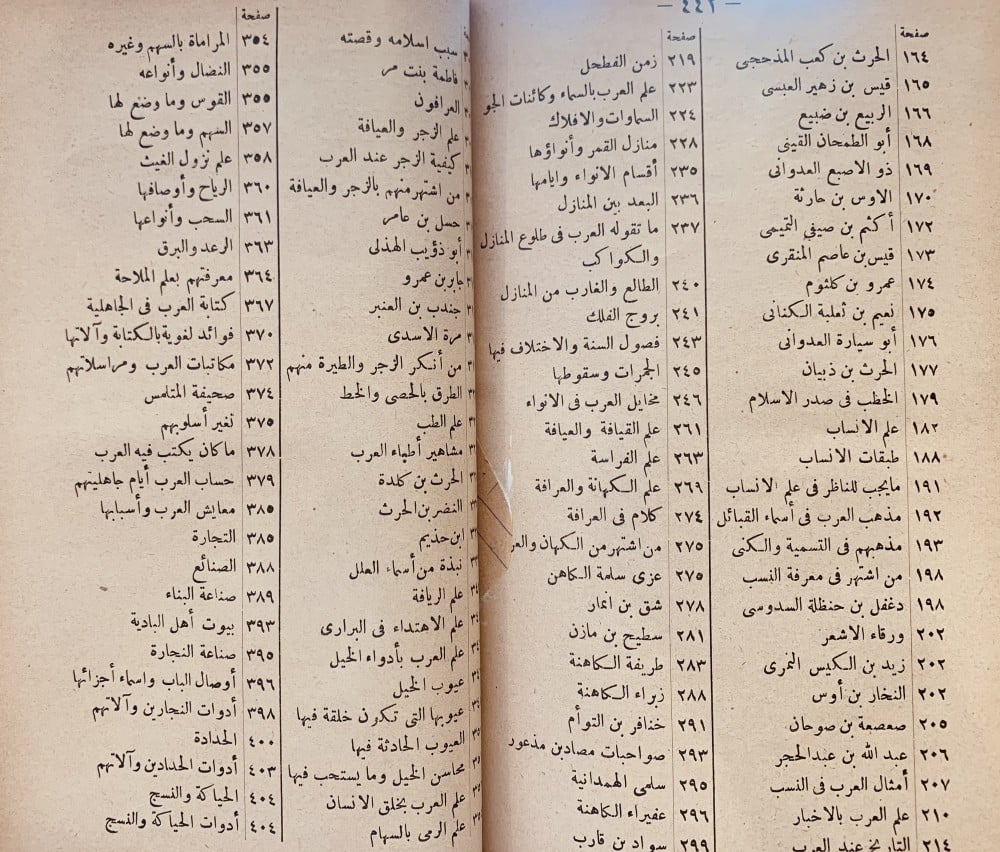 — ٤٤٢ —
صفحة
١٦٤ الحرث بن كعب المذحجى
١٦٥ قيس بن زهير العبسى
١٦٦ الربيع بن ضبيع
١٦٨ أبو الطمحان القينى
١٦٩ ذو الاصبع العدوانى
١٧٠ الاوس بن حارثة
١٧٢ أكثم بن صيفي التميمى
١٧٣ قيس بن عاصم المنقرى
١٧٤ عمرو بن كلثوم
١٧٥ نعيم بن ثعلبة الكنانى
١٧٦ أبو سيارة العدوانى
١٧٧ الحرث بن ذبيان
١٧٩ الخطب فى صدر الاسلام
١٨٢ علم الانساب
١٨٨ طبقات الانساب
١٩١ مايجب للناظر فى علم الانساب
١٩٢ مذهب العرب فى أسماء القبائل
١٩٣ مذهبهم فى التسمية والكنى
١٩٨ من اشتهر فى معرفة النسب
١٩٨ دغفل بن حنظلة السدوسى
٢٠٢ ورقاء الاشعر
٢٠٢ زيد بن الكيس النمرى
٢٠٢ النخار بن أوس
٢٠٥ صعصعة بن صوحان
٢٠٦ عبد الله بن عبدالحجر
٢٠٧ أمثال العرب فى النسب
٢١٠ علم العرب بالاخبار
٢١٤ التاريخ عند العرب
صفحة
٢١٩ زمن الفطحل
٢٢٣ علم العرب بالسماء وكائنات الجو
٢٢٤ السماوات والافلاك
٢٢٨ منازل القمر وأنواؤها
٢٣٥ أقسام الانواء وايامها
٢٣٦ البعد بين المنازل
٢٣٧ ما تقوله العرب فى طلوع المنازل
والكواكب
٢٤٠ الطالع والغارب من المنازل
٢٤١ بروج الفلك
٢٤٣ فصول السنة والاختلاف فيها
٢٤٥ الجمرات وسقوطها
٢٤٦ مخايل العرب فى الانواء
٢٦١ علم القيافة والعيافة
٢٦٣ علم الفراسة
٢٦٩ علم الكهانة والعرافة
٢٧٤ كلام فى العرافة
٢٧٥ من اشتهر من الكهان والعر
٢٧٥ عزى سلمة الكاهن
٢٧٨ شق بن انمار
٢٨١ سطيح بن مازن
٢٨٣ طريفة الكاهنة
٢٨٨ زبراء الكاهنة
٢٩١ خنافر بن التوأم
٢٩٣ صواحبات مصاد بن مذعور
٢٩٥ سلمى الهمدانية
٢٩٦ عفيراء الكاهنة
٢٩٩ سواد بن قارب
سبب اسلامه وقصته
فاطمة بنت مر
العرافون
علم الزجر والعيافة
كيفية الزجر عند العرب
من اشتهر منهم بالزجر والعيافة
حسل بن عامر
أبو ذؤيب الهذلى
جابر بن عمرو
جندب بن العنبر
مرة الاسدى
من أنكر الزجر والطيرة منهم
الطرق بالحصى والخط
علم الطب
مشاهير أطباء العرب
الحرث بن كلدة
النضر بن الحرث
ابن حذيم
نبذة من أسماء العلل
علم الريافة
علم الاهتداء فى البرارى
علم العرب بأدواء الخيل
عيوب الخيل
عيوبها التى تكون خلقة فيها
العيوب الحادثة فيها
محاسن الخيل وما يستحب فيها
علم العرب بخلق الانسان
علم الرمى بالسهام
صفحة
٣٥٤ المراماة بالسهم وغيره
٣٥٥ النضال وأنواعه
٣٥٥ القوس وما وضع لها
٣٥٧ السهم وما وضع لها
٣٥٨ علم نزول الغيث
٣٦٠ الرياح وأوصافها
٣٦١ السحب وأنواعها
٣٦٣ الرعد والبرق
٣٦٤ معرفتهم بعلم الملاحة
٣٦٧ كتابة العرب فى الجاهلية
٣٧٠ فوائد لغوية بالكتابة وآلاتها
٣٧٢ مكاتبات العرب ومراسلاتهم
٣٧٤ صحيفة المتلمس
٣٧٥ تغير أسلوبهم
٣٧٨ ما كان يكتب فيه العرب
٣٧٩ حساب العرب أيام جاهليتهم
٣٨٥ معايش العرب وأسبابها
٣٨٥ التجارة
٣٨٨ الصنائع
٣٨٩ صناعة البناء
٣٩٣ بيوت أهل البادية
٣٩٥ صناعة النجارة
٣٩٦ أوصال الباب واسماء أجزائها
٣٩٨ أدوات النجارين وآلاتهم
٤٠٠ الحدادة
٤٠٣ أدوات الحدادين وآلاتهم
٤٠٤ الحياكة والنسج
٤٠٤ أدوات الحياكة والنسج